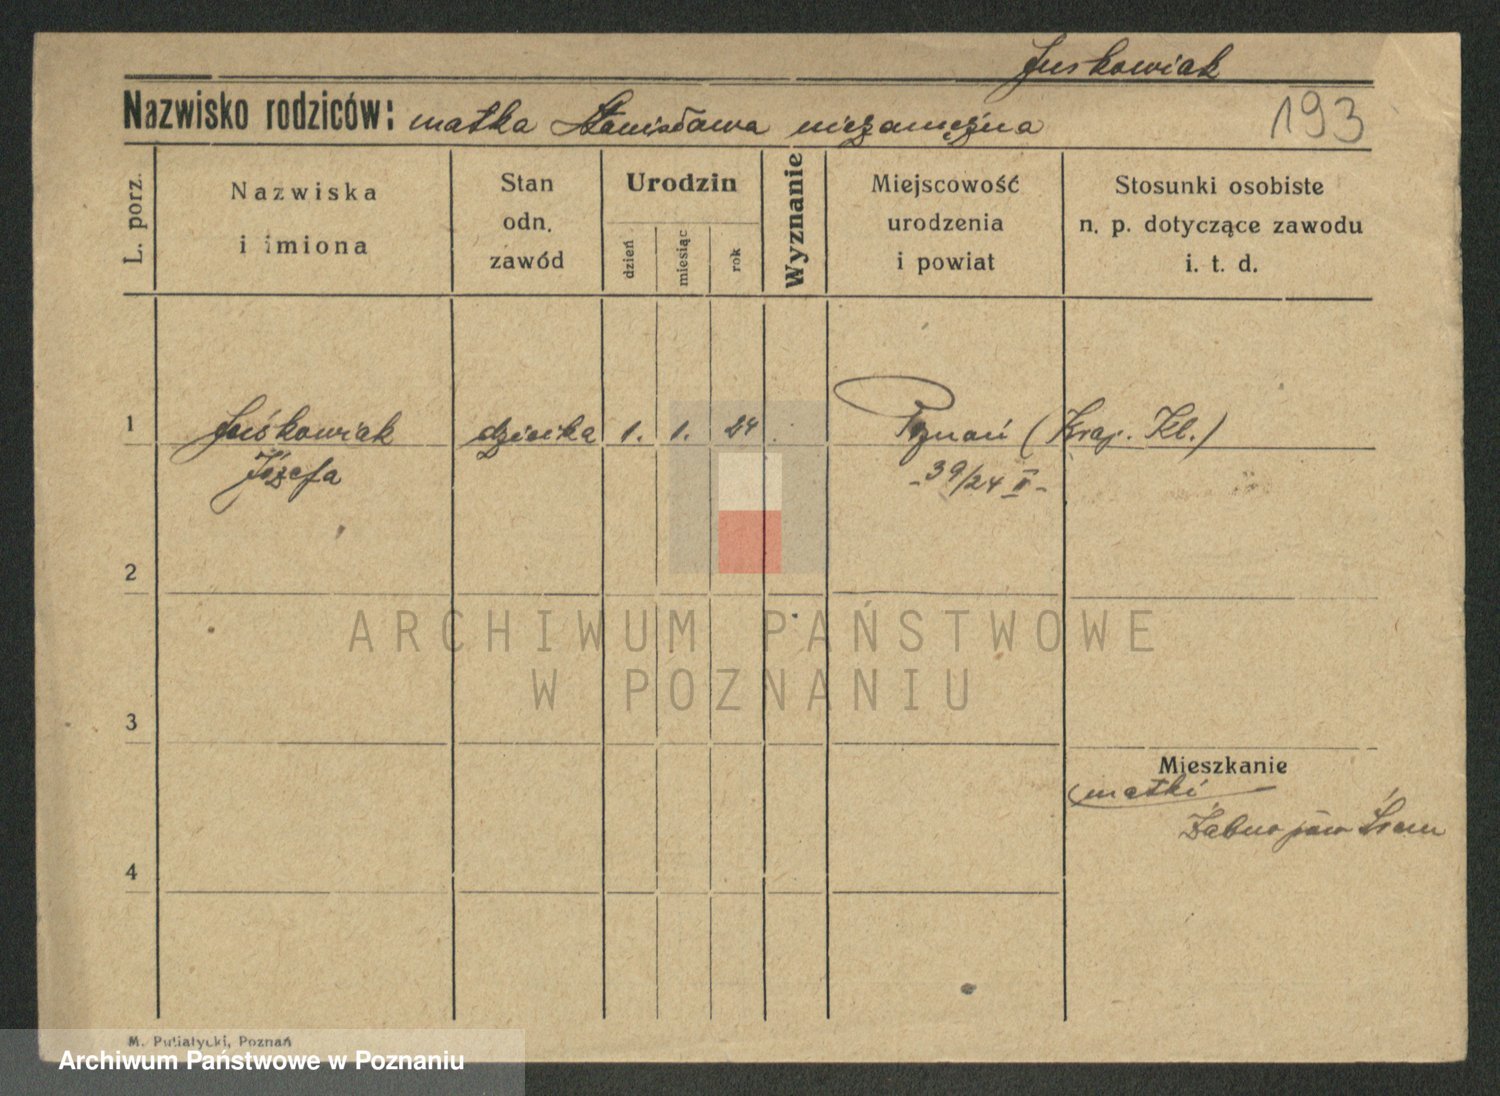 Juskowiak
Nazwisko rodziców: matka Stanisława niezamężna
193
L. porz.
Nazwiska
i imiona
Stan
odn.
zawód
Urodzin
dzień
miesiąc
rok
Wyznanie
Miejscowość
urodzenia
i powiat
Stosunki osobiste
n. p. dotyczące zawodu
i. t. d.
1
Juśkowiak
Józefa
1. 1. 24
Poznań (Kraj. Kl.)
-39/24 II-
2
3
4
ARCHIWUM PAŃSTWOWE
W POZNANIU
Mieszkanie
matki
Żabno pow Śrem
M. Putiatycki, Poznań
Archiwum Państwowe w Poznaniu